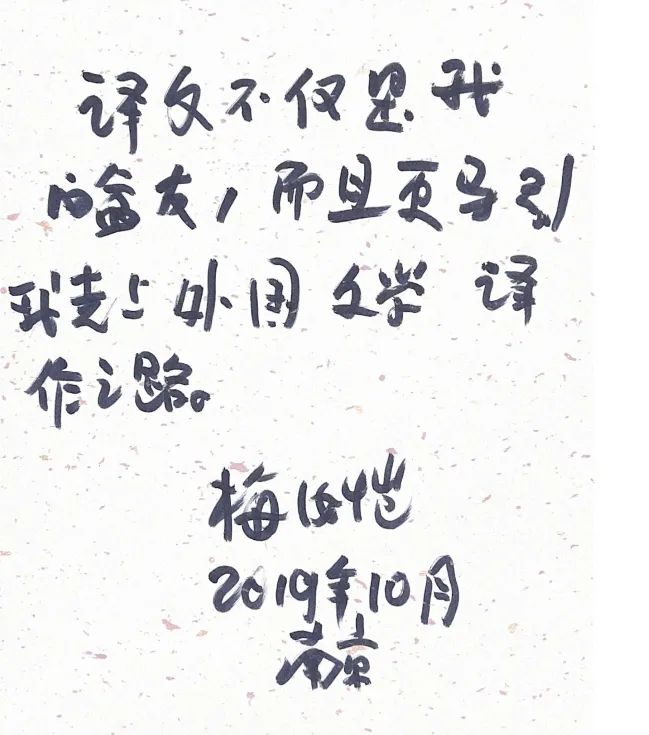 译文不仅是我
的益友，而且更导引
我走上外国文学 译
作之路。
梅汝恺
2019年10月
南京